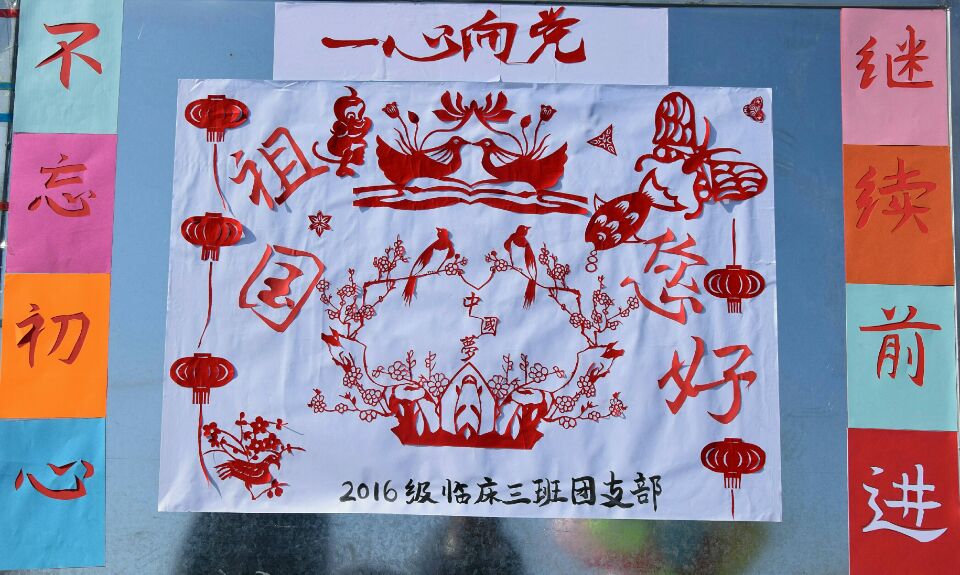 一心向党
不忘初心
祖国
您好
中國夢
2016级临床三班团支部
继续前进